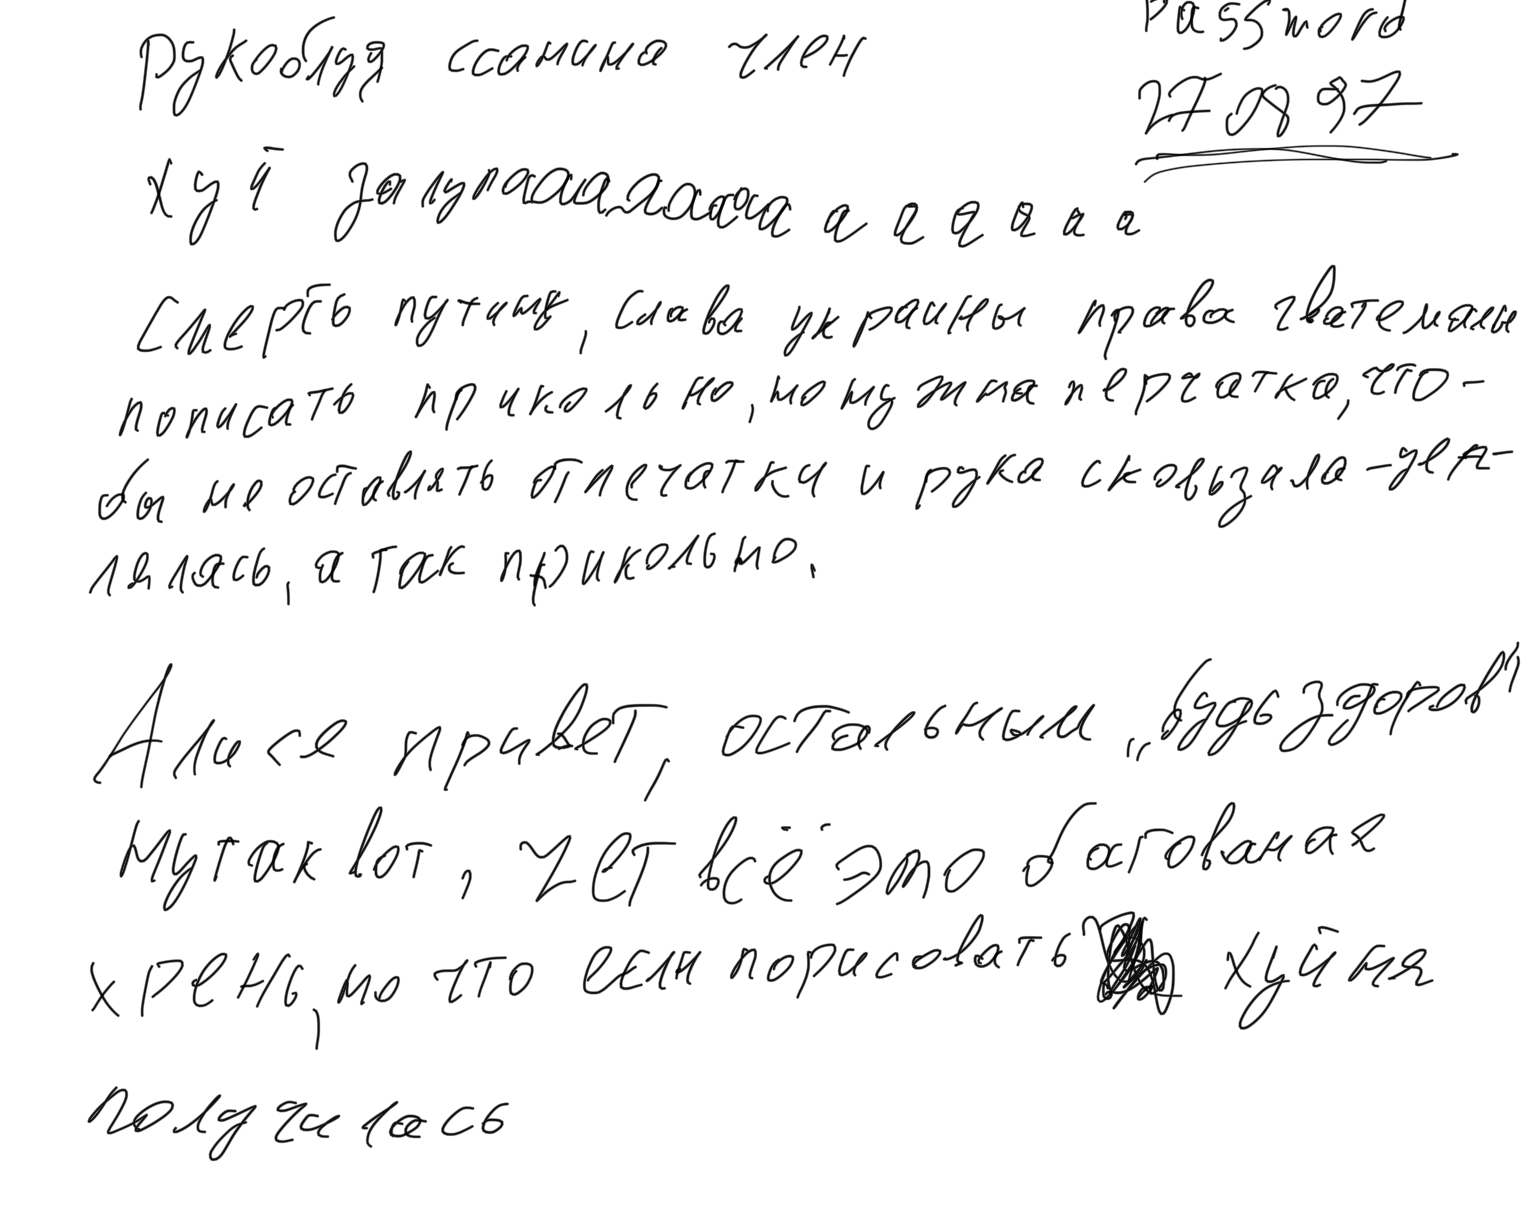 Password
270897
рукоблудя ссанина член
хуй залупааааааааа а а а а а а
Смерть путину, слава украины права гватемалы
пописать прикольно, но нужна перчатка, что-
бы не оставлять отпечатки и рука сковьзала-цеп-
лялась, а так прикольно.
Алисе привет, остальным „будь здоров"
Ну так вот, чет всё это багованая
хрень, но что если порисовать хуйня
получилась